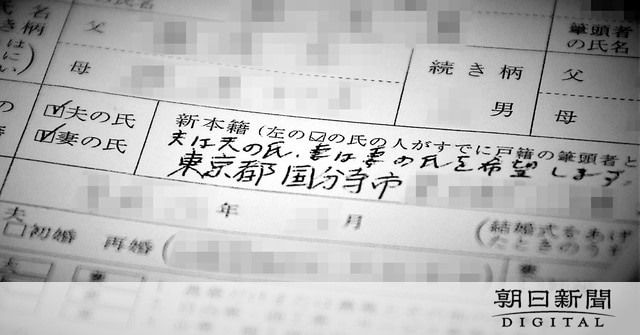 氏名
続き柄
父
母
続き柄
男
筆頭者
の氏名
父
母
☑夫の氏
☑妻の氏
新本籍(左の☑の氏の人がすでに戸籍の筆頭者と
夫は夫の氏、妻は妻の氏を希望します。
東京都国分寺市
年 月
(結婚式をあげ
たときのうち
夫
□初婚 再婚(
妻
朝日新聞
DIGITAL